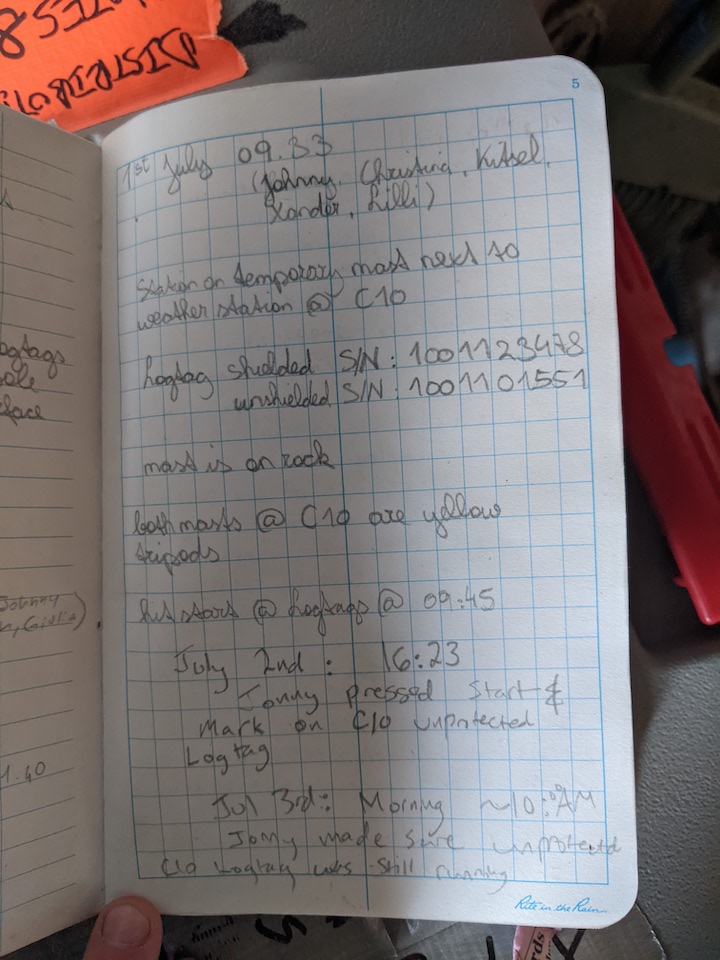 DISTRIBUT
TES 8
5
1st July 09.33
(Johnny, Christina, Kittel,
Xander, Lilli)
station on temporary mast next to
weather station @ C10
logtag shielded S/N: 1001123478
unshielded S/N: 1001101551
mast is on rock
both masts @ C10 are yellow
tripods
hit start @ logtags @ 09:45
July 2nd: 16:23
Jonny pressed Start &
Mark on C10 unprotected
Logtag
Jul 3rd: Morning ~10:00 AM
Jonny made sure unprotected
C10 Logtag was still running
Rite in the Rain
ogtags
ole
face
Johnny
1.40